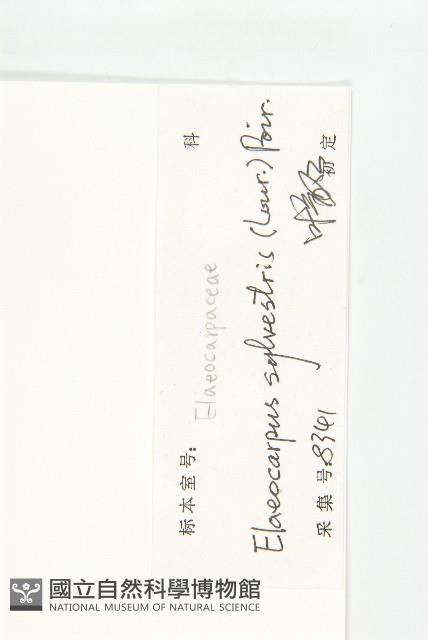 标本室号: Elaeocarpaceae 科
Elaeocarpus sylvestris (Lour.) Poir.
采集号: 8341 初定
國立自然科學博物館
NATIONAL MUSEUM OF NATURAL SCIENCE